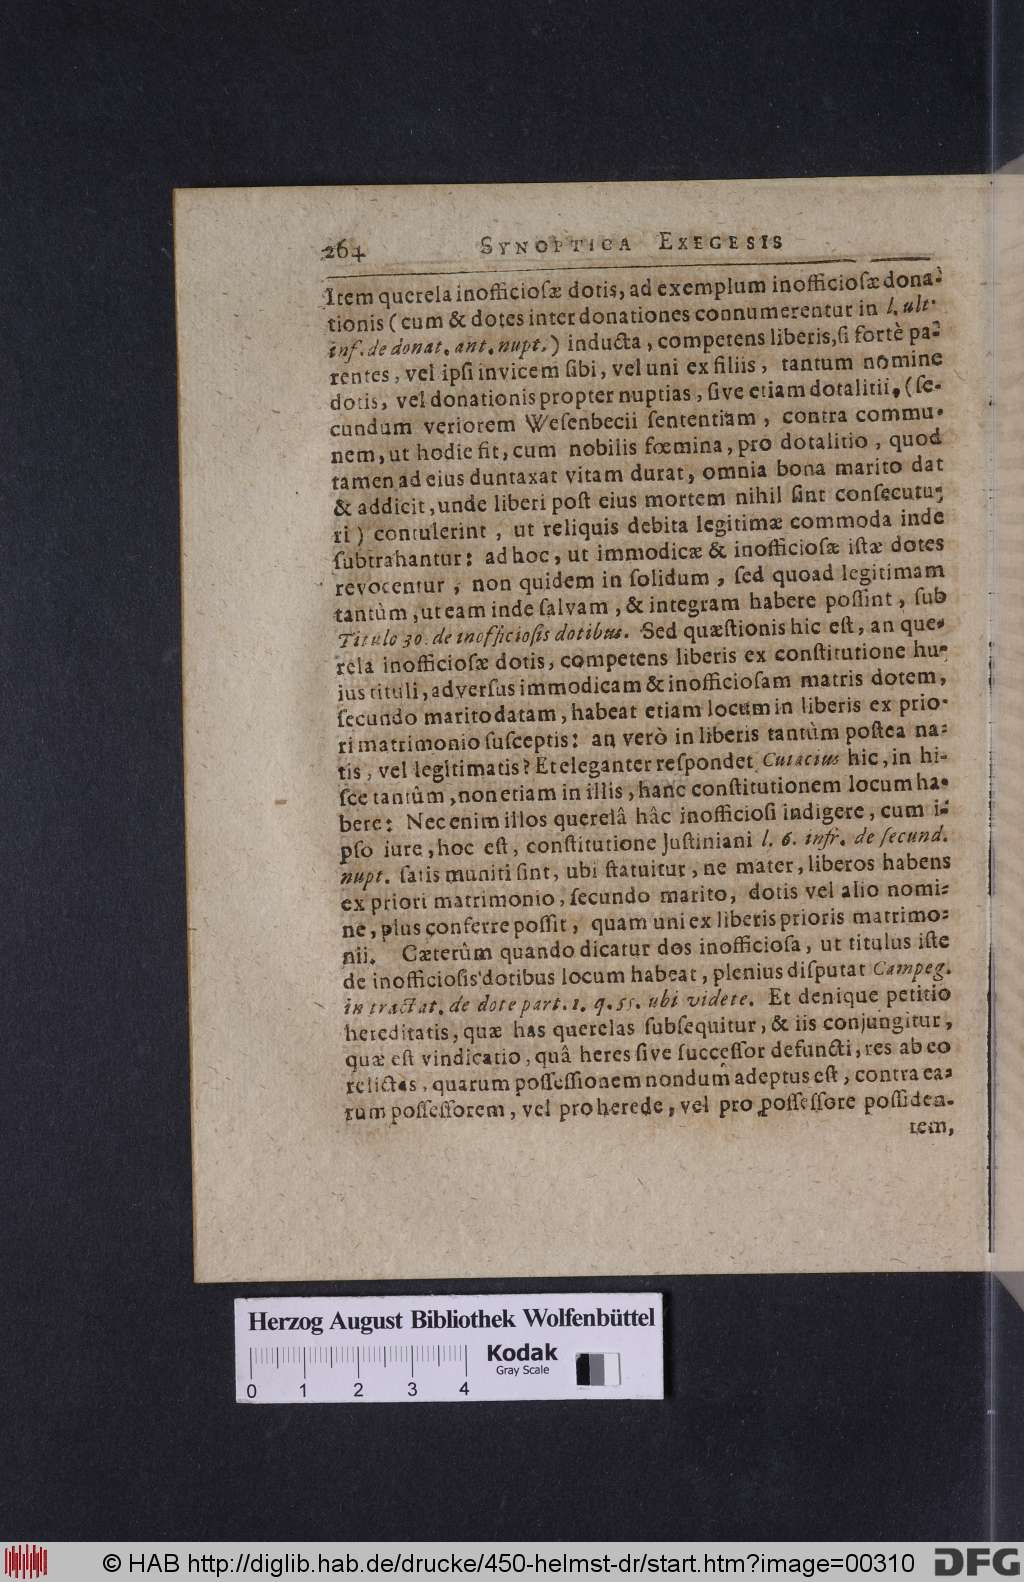 264 SYNOPTICA EXEGESIS
Item querela inofficioſæ dotis, ad exemplum inofficioſæ dona-
tionis (cum & dotes inter donationes connumerentur in l. ult.
inf. de donat. ant. nupt.) inducta, competens liberis, ſi fortè pa-
rentes, vel ipſi invicem ſibi, vel uni ex filiis, tantum nomine
dotis, vel donationis propter nuptias, ſive etiam dotalitii, (ſe-
cundum veriorem Weſenbecii ſententiam, contra commu-
nem, ut hodie fit, cum nobilis fœmina, pro dotalitio, quod
tamen ad eius duntaxat vitam durat, omnia bona marito dat
& addicit, unde liberi poſt eius mortem nihil ſint conſecutu-
ri) contulerint, ut reliquis debita legitimæ commoda inde
ſubtrahantur: ad hoc, ut immodicæ & inofficioſæ iſtæ dotes
revocentur, non quidem in ſolidum, ſed quoad legitimam
tantùm, ut eam inde ſalvam, & integram habere poſſint, ſub
Titulo 30. de inofficioſis dotibus. Sed quæſtionis hic eſt, an que-
rela inofficioſæ dotis, competens liberis ex conſtitutione hu-
jus tituli, adverſus immodicam & inofficioſam matris dotem,
ſecundo marito datam, habeat etiam locum in liberis ex prio-
ri matrimonio ſuſceptis: an verò in liberis tantùm poſtea na-
tis, vel legitimatis? Et eleganter reſpondet Cuiacius hic, in hi-
ſce tantûm, non etiam in illis, hanc conſtitutionem locum ha-
bere: Nec enim illos querelâ hâc inofficioſi indigere, cum i-
pſo iure, hoc eſt, conſtitutione Juſtiniani l. 6. infr. de ſecund.
nupt. ſatis muniti ſint, ubi ſtatuitur, ne mater, liberos habens
ex priori matrimonio, ſecundo marito, dotis vel alio nomi-
ne, plus conferre poſſit, quam uni ex liberis prioris matrimo-
nii. Cæterûm quando dicatur dos inofficioſa, ut titulus iſte
de inofficioſis dotibus locum habeat, plenius diſputat Campeg.
in tractat. de dote part. 1. q. 55. ubi videte. Et denique petitio
hereditatis, quæ has querelas ſubſequitur, & iis conjungitur,
quæ eſt vindicatio, quâ heres ſive ſucceſſor defuncti, res ab eo
relictas, quarum poſſeſſionem nondum adeptus eſt, contra ea-
rum poſſeſſorem, vel pro herede, vel pro poſſeſſore poſſiden-
tem,
Herzog August Bibliothek Wolfenbüttel
Kodak
Gray Scale
0 1 2 3 4
© HAB http://diglib.hab.de/drucke/450-helmst-dr/start.htm?image=00310 DFG